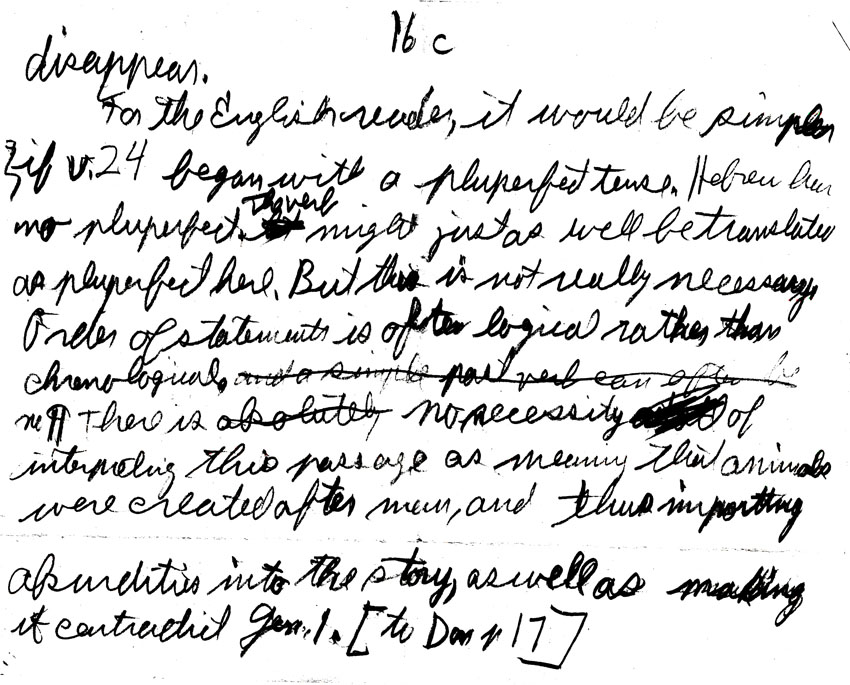 16 c
disappear.
For the English reader, it would be simpler
if v. 24 began with a pluperfect tense. Hebrew has
no pluperfect. The verb might just as well be translated
as pluperfect here. But this is not really necessary.
Order of statements is often logical rather than
chronological, and a simple past verb can often be
no ¶ There is absolutely no necessity of
interpreting this passage as meaning that animals
were created after man, and thus importing
absurdities into the story, as well as making
it contradict Gen. 1. [to Don p 17]